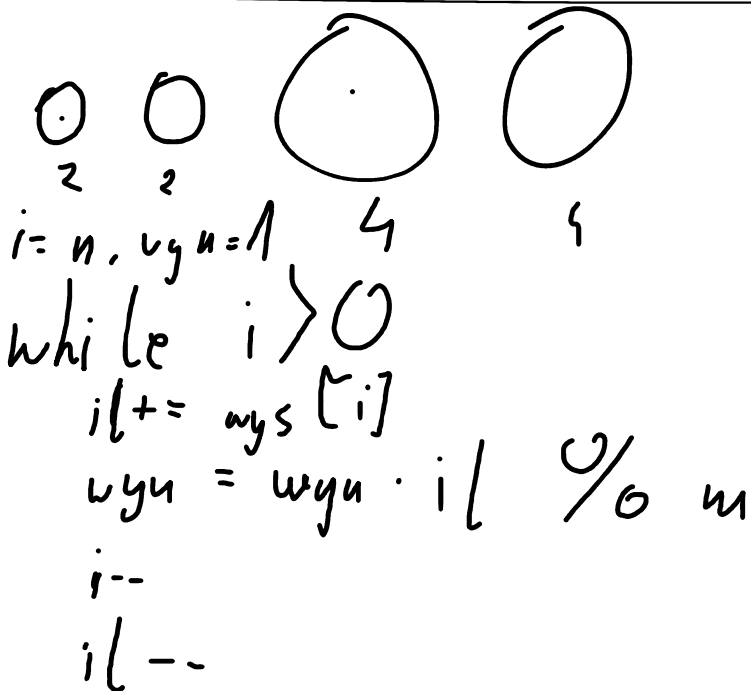 2 2 4 4
i = n, wyn = 1
while i > 0
il += wys [i]
wyn = wyn · il % m
i--
il --